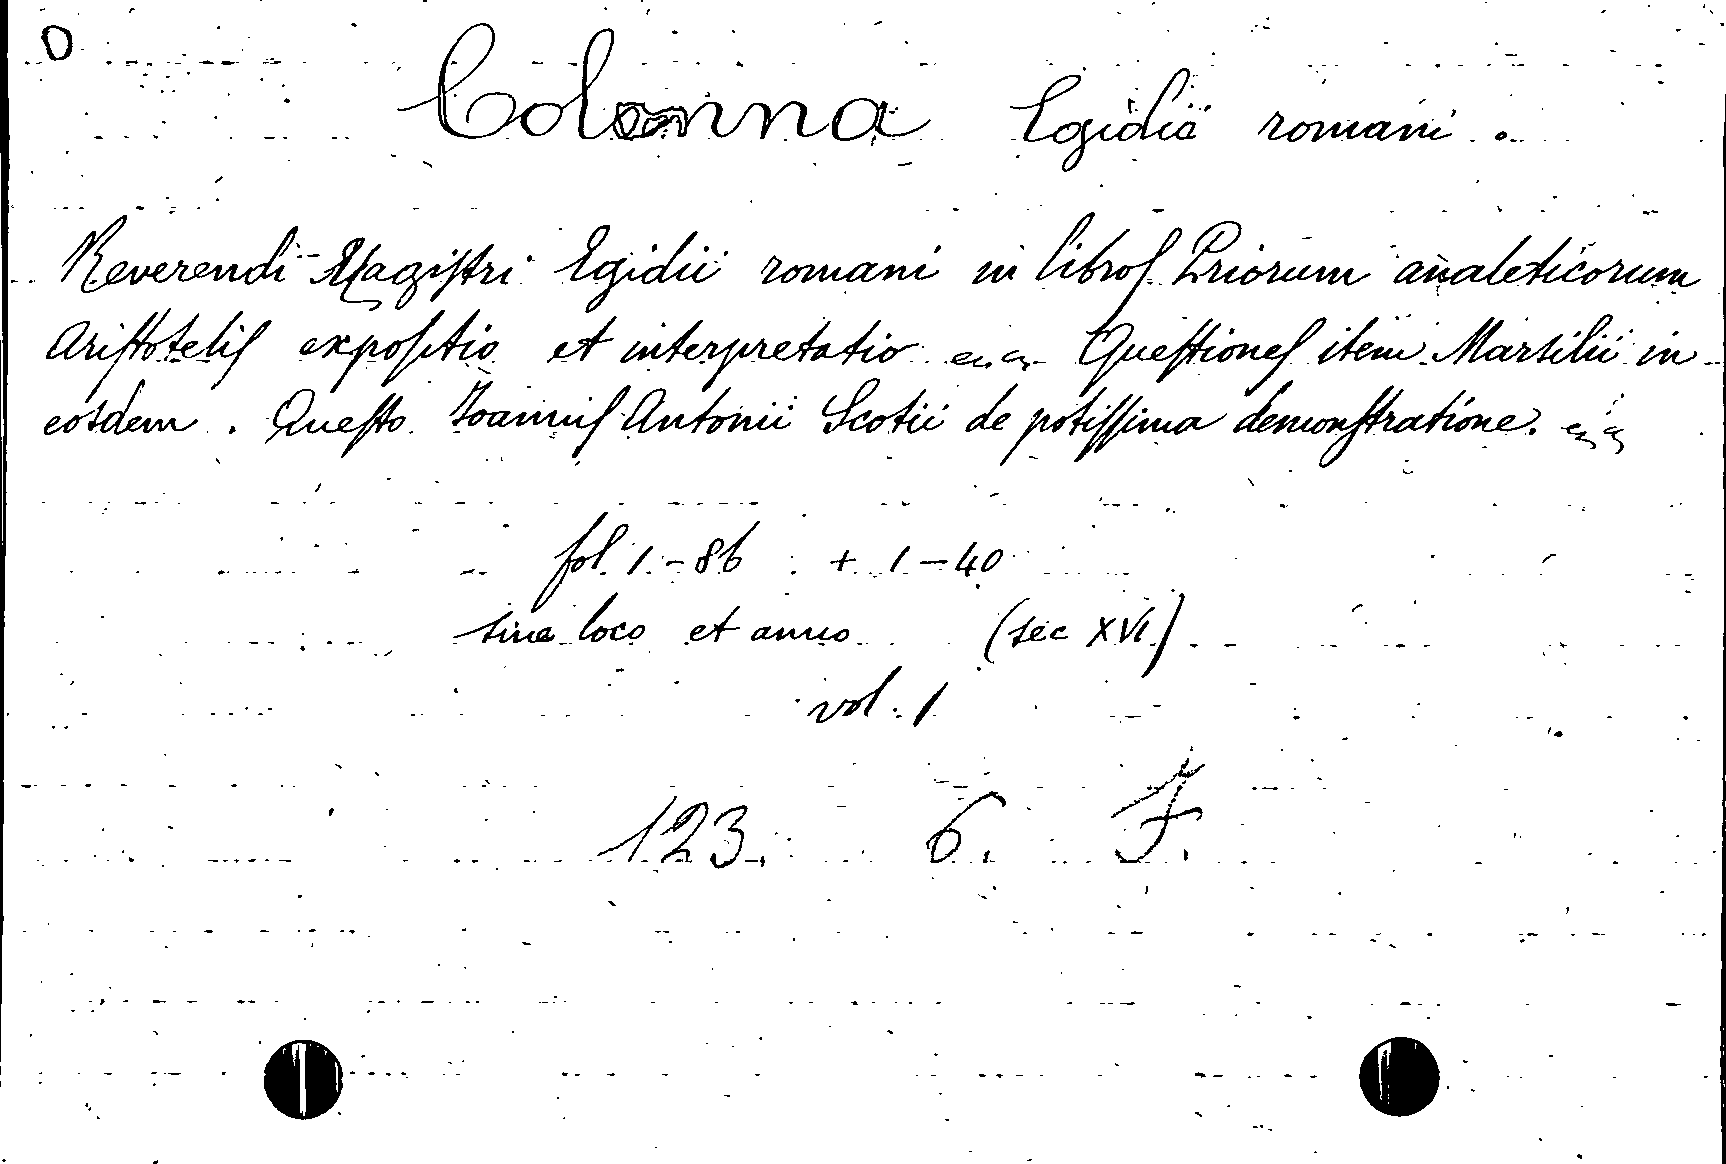 O
Colonna Egidii romani.
Reverendi Magiſtri Egidii romani in libroſ Priorum analeticorum
Ariſtoteliſ expoſitio et interpretatio Queſtioneſ item Marsilii in
eosdem. Queſto Ioanniſ Antonii Scotii de potiſſima demonſtratione.
fol. 1-86 + 1-40
sine loco et anno (sec XVI)
vol. 1
123. 6. F.